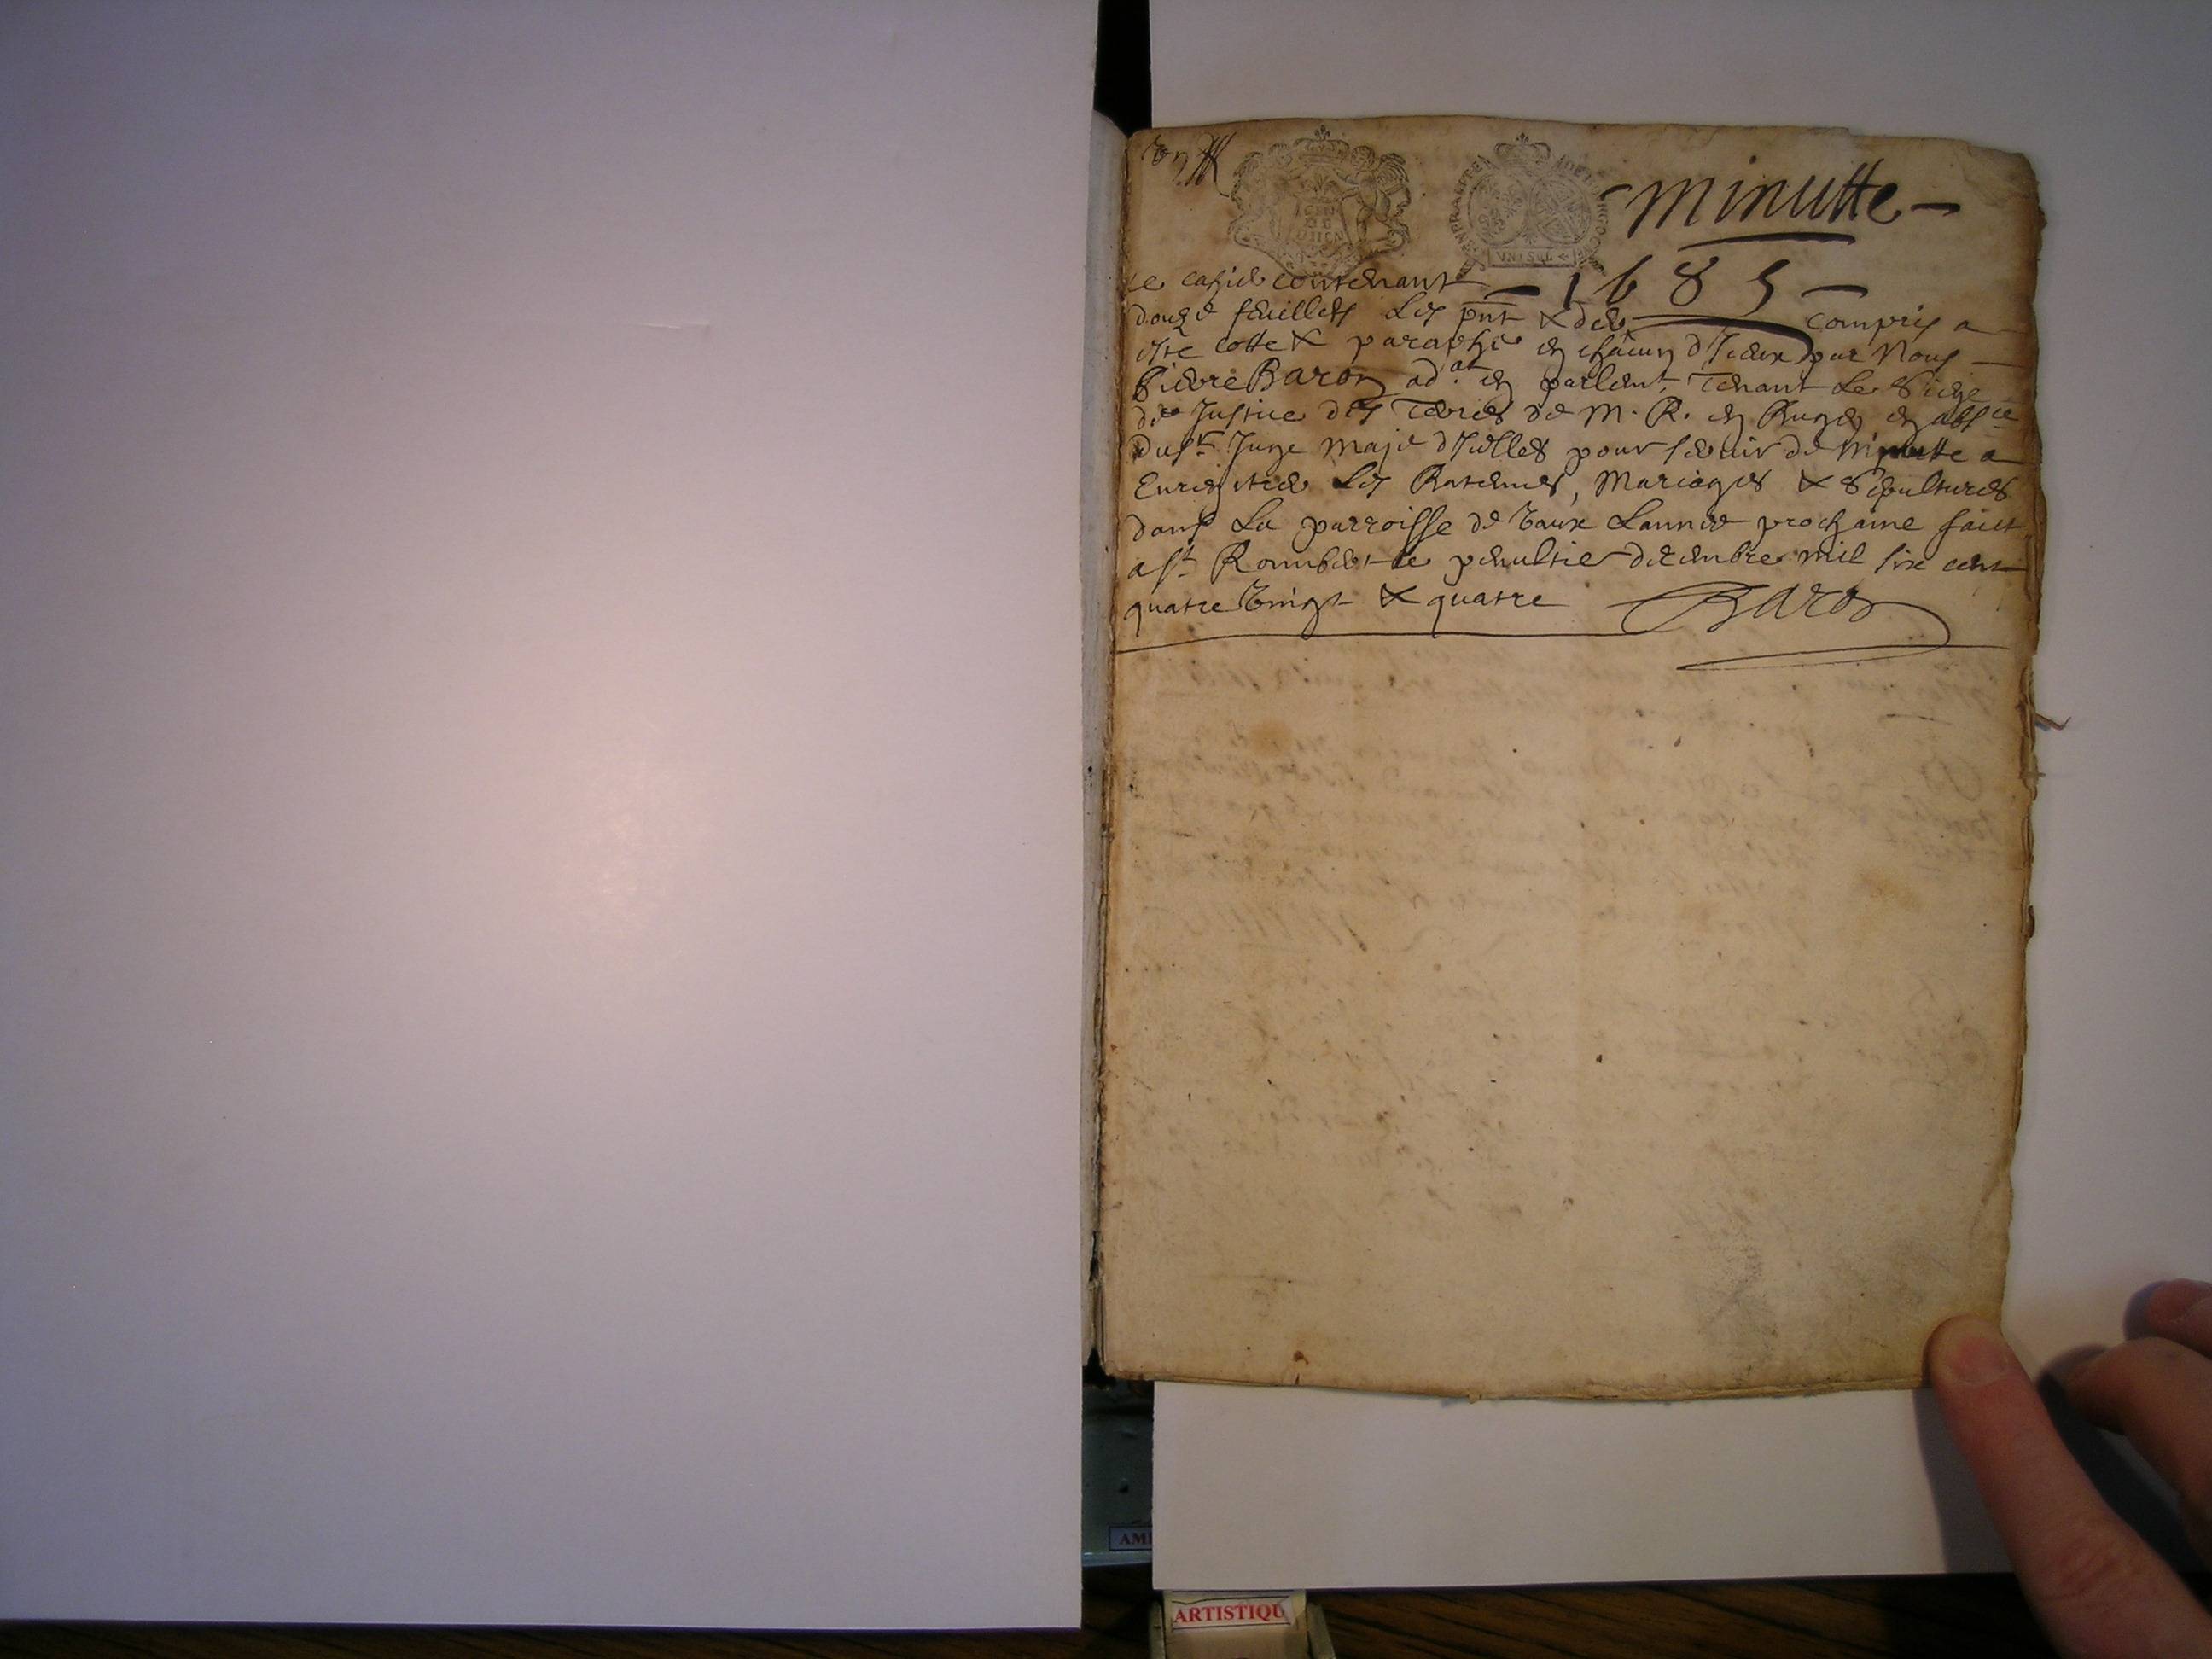 minutte
1685
ce cahier contenant
douze feuillets les pnt & der compris a
este cotte & paraphe en chacun d'Iceux par Nous
Pierre Baron ad.at en parlemt, Tenant Le Siege
de Justice des Terres de M. R. en Bugey en absce
du sr Juge Maje d'Icelles pour servir de Minutte a
Enregistrer Les Batemes, Mariages & Sepultures
dans La parroisse de Vaux Lannee prochaine faict
a st Rambert le penultie decembre mil six cent
quatre Vingt & quatre Baron
VN SOL
AM
ARTISTIQU